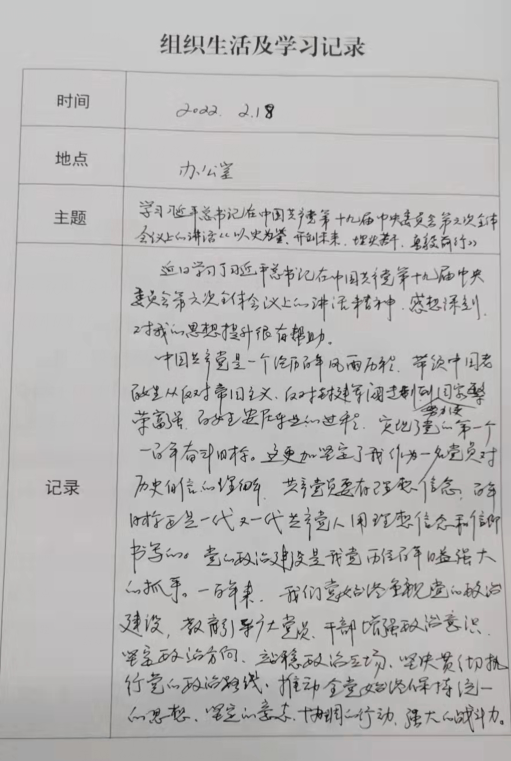 组织生活及学习记录
时间
2022. 2.18
地点
办公室
主题
学习习近平总书记在中国共产党第十九届中央委员会第六次全体
会议上的讲话《以史为鉴、开创未来、埋头苦干、勇毅前行》
记录
近日学习了习近平总书记在中国共产党第十九届中央
委员会第六次全体会议上的讲话精神，感想深刻，
对我的思想提升很有帮助。
中国共产党是一个经历百年风雨历程，带领中国老
百姓从反对帝国主义、反对封建军阀到国家繁
荣富强、百姓安居乐业的过程，实现了党的第一个
一百年奋斗目标。这更加坚定了我作为一名党员对
历史自信的理解，共产党员要有理想信念，百年
目标正是一代又一代共产党人用理想信念和信仰
书写的。党的政治建设是我党历经百年日益强大
的抓手。一百年来，我们党始终重视党的政治
建设，教育引导广大党员、干部增强政治意识、
坚定政治方向、站稳政治立场、坚决贯彻执
行党的政治路线，推动全党始终保持统一
的思想、坚定的意志、协调的行动、强大的战斗力。